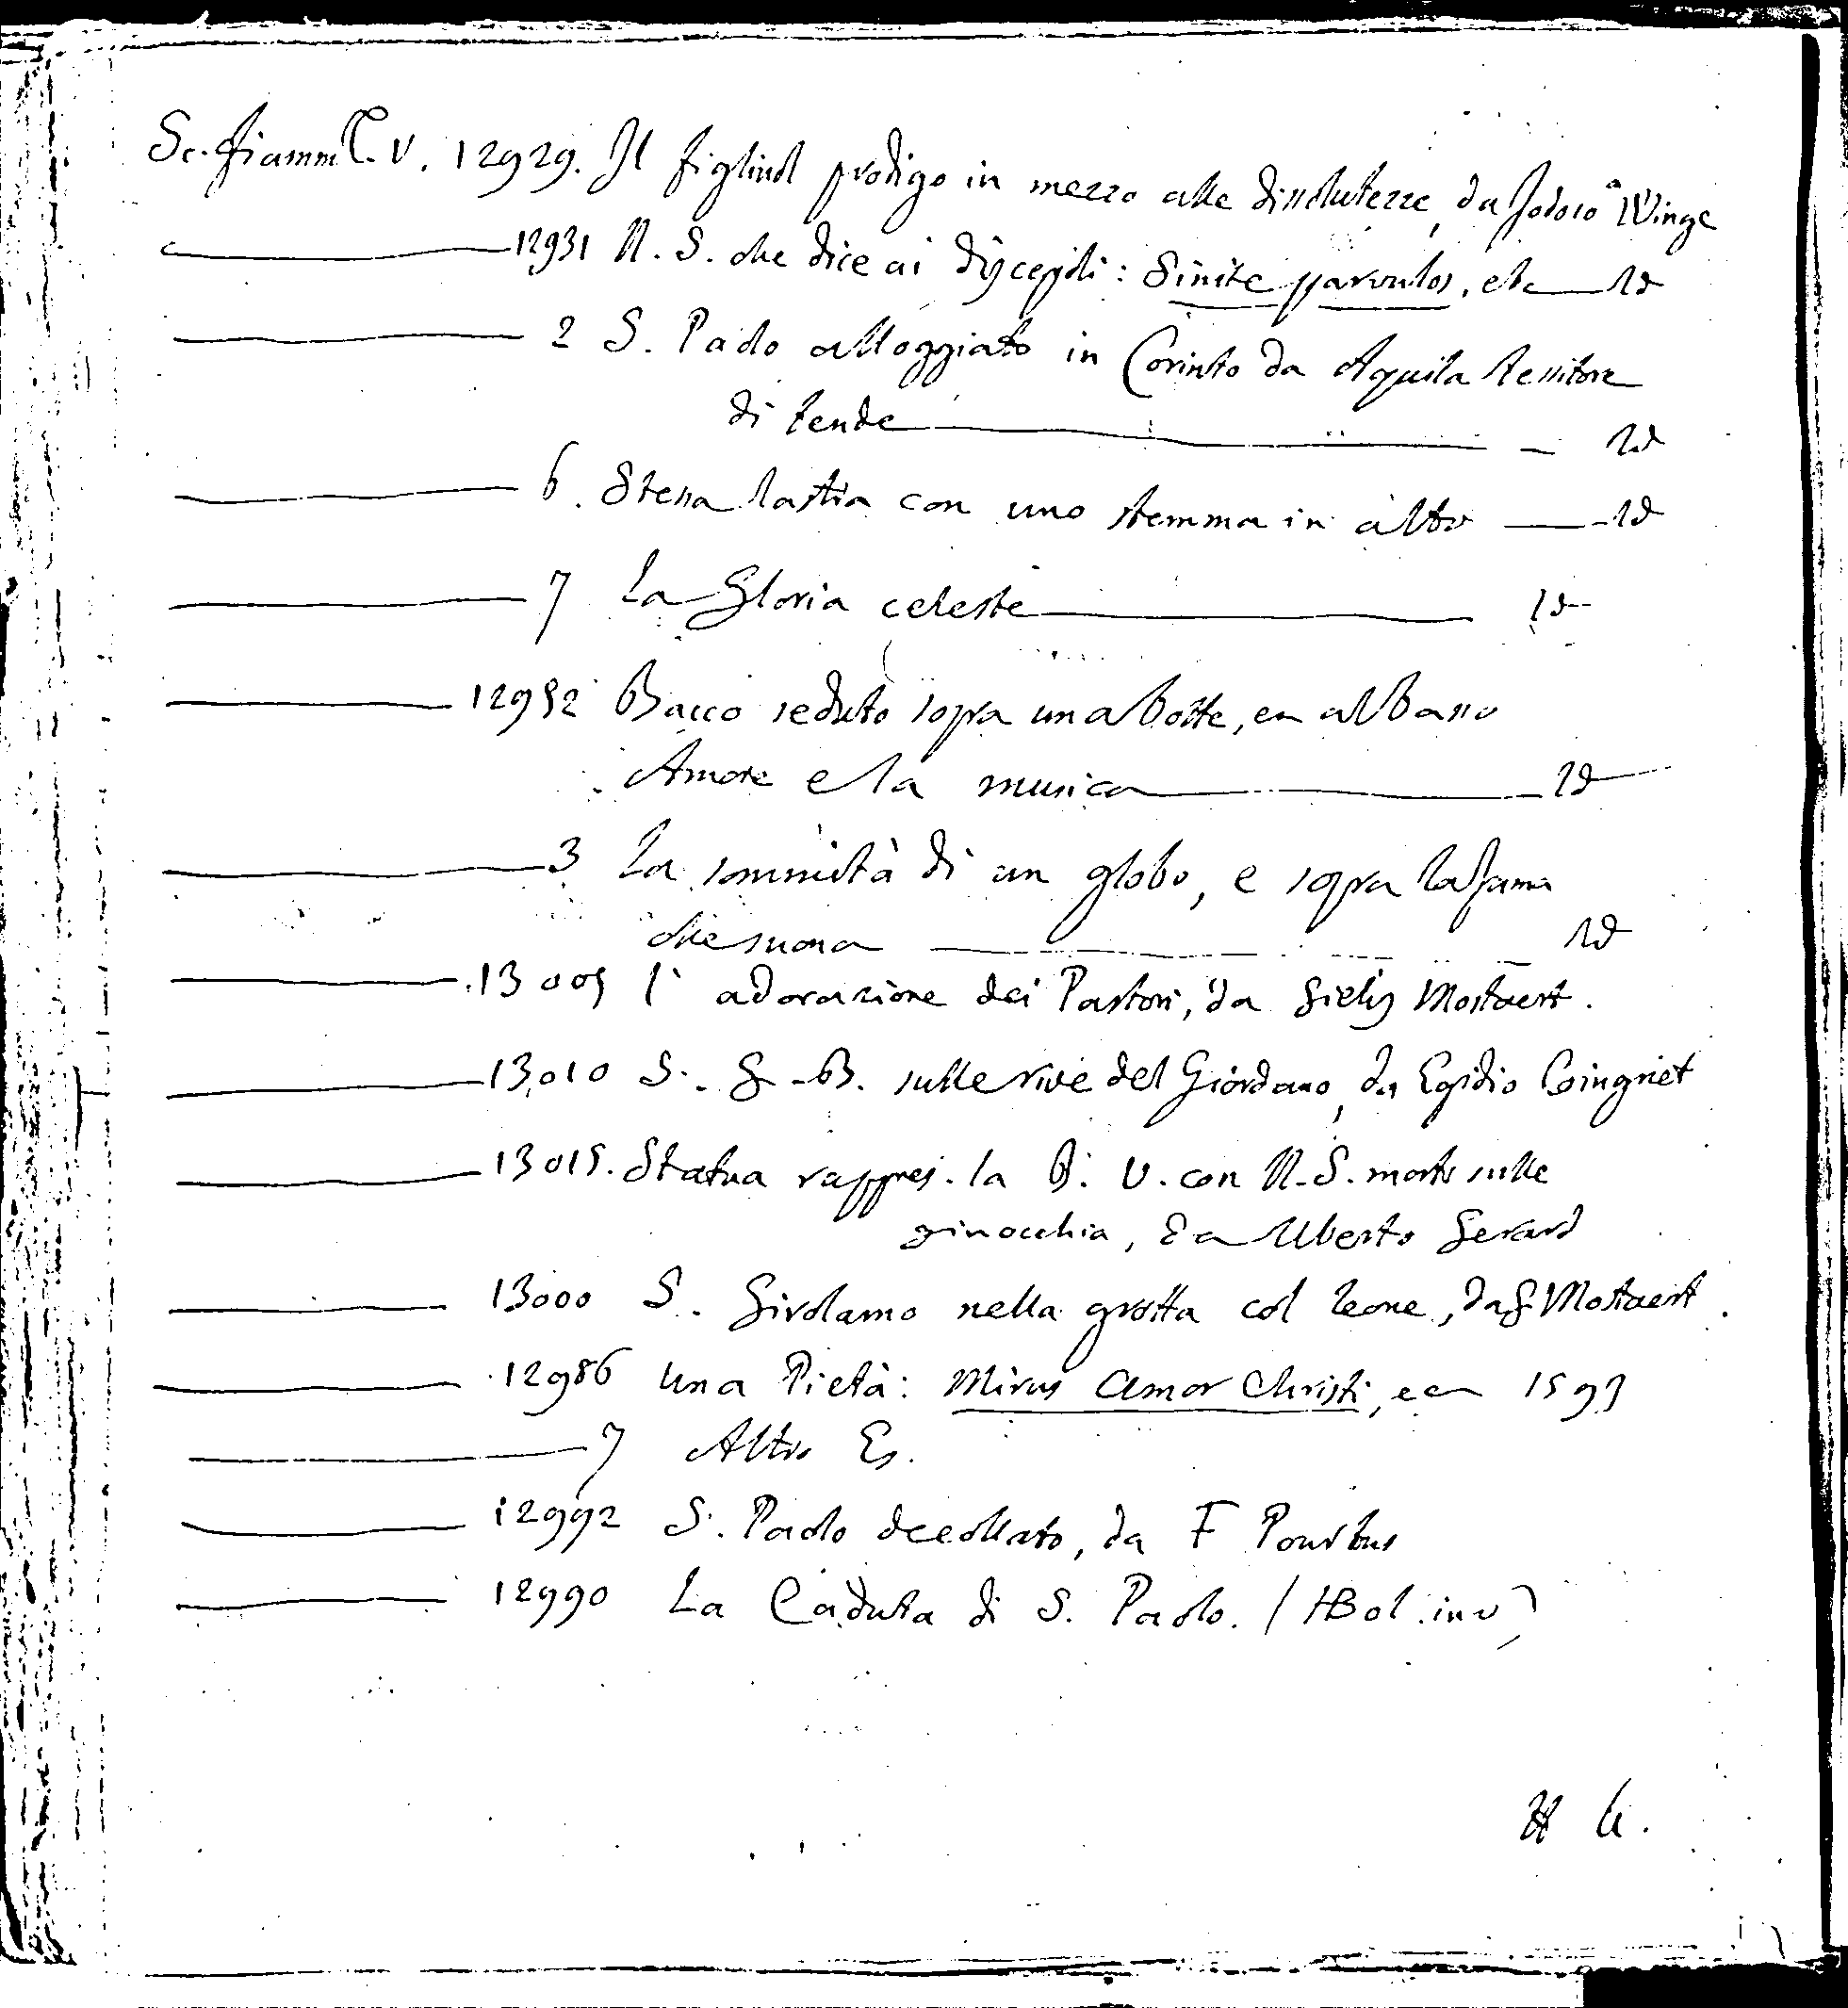 Sc. fiamm. T. V. 12929. Il figliuol prodigo in mezzo alle dissolutezze, da Jodoco a Winge
12931 N. S. che dice ai discepoli: Sinite parvulos, etc Id
2 S. Paolo alloggiato in Corinto da Aquila tessitore
di tende Id
6. Stessa lastra con uno stemma in alto Id
7 La Gloria celeste Id
12952 Bacco seduto sopra una botte, e a abbasso
Amore e la musica Id
3 La sommità di un globo, e sopra la fama
che suona Id
13005 l'adorazione dei Pastori, da Gielis Mostaert.
13,010 S. G. B. sulle rive del Giordano, da Egidio Coingniet
13015. Statua rappres. la B. V. con N. S. morto sulle
ginocchia, da Uberto Gerard
13000 S. Girolamo nella grotta col leone, da G. Mostaert.
12986 Una Pietà: Mirus amor Christi, ec 1593
7 Altro Es.
12992 S. Paolo decollato, da F Pourbus
12990 La Caduta di S. Paolo. (HBol. inv)